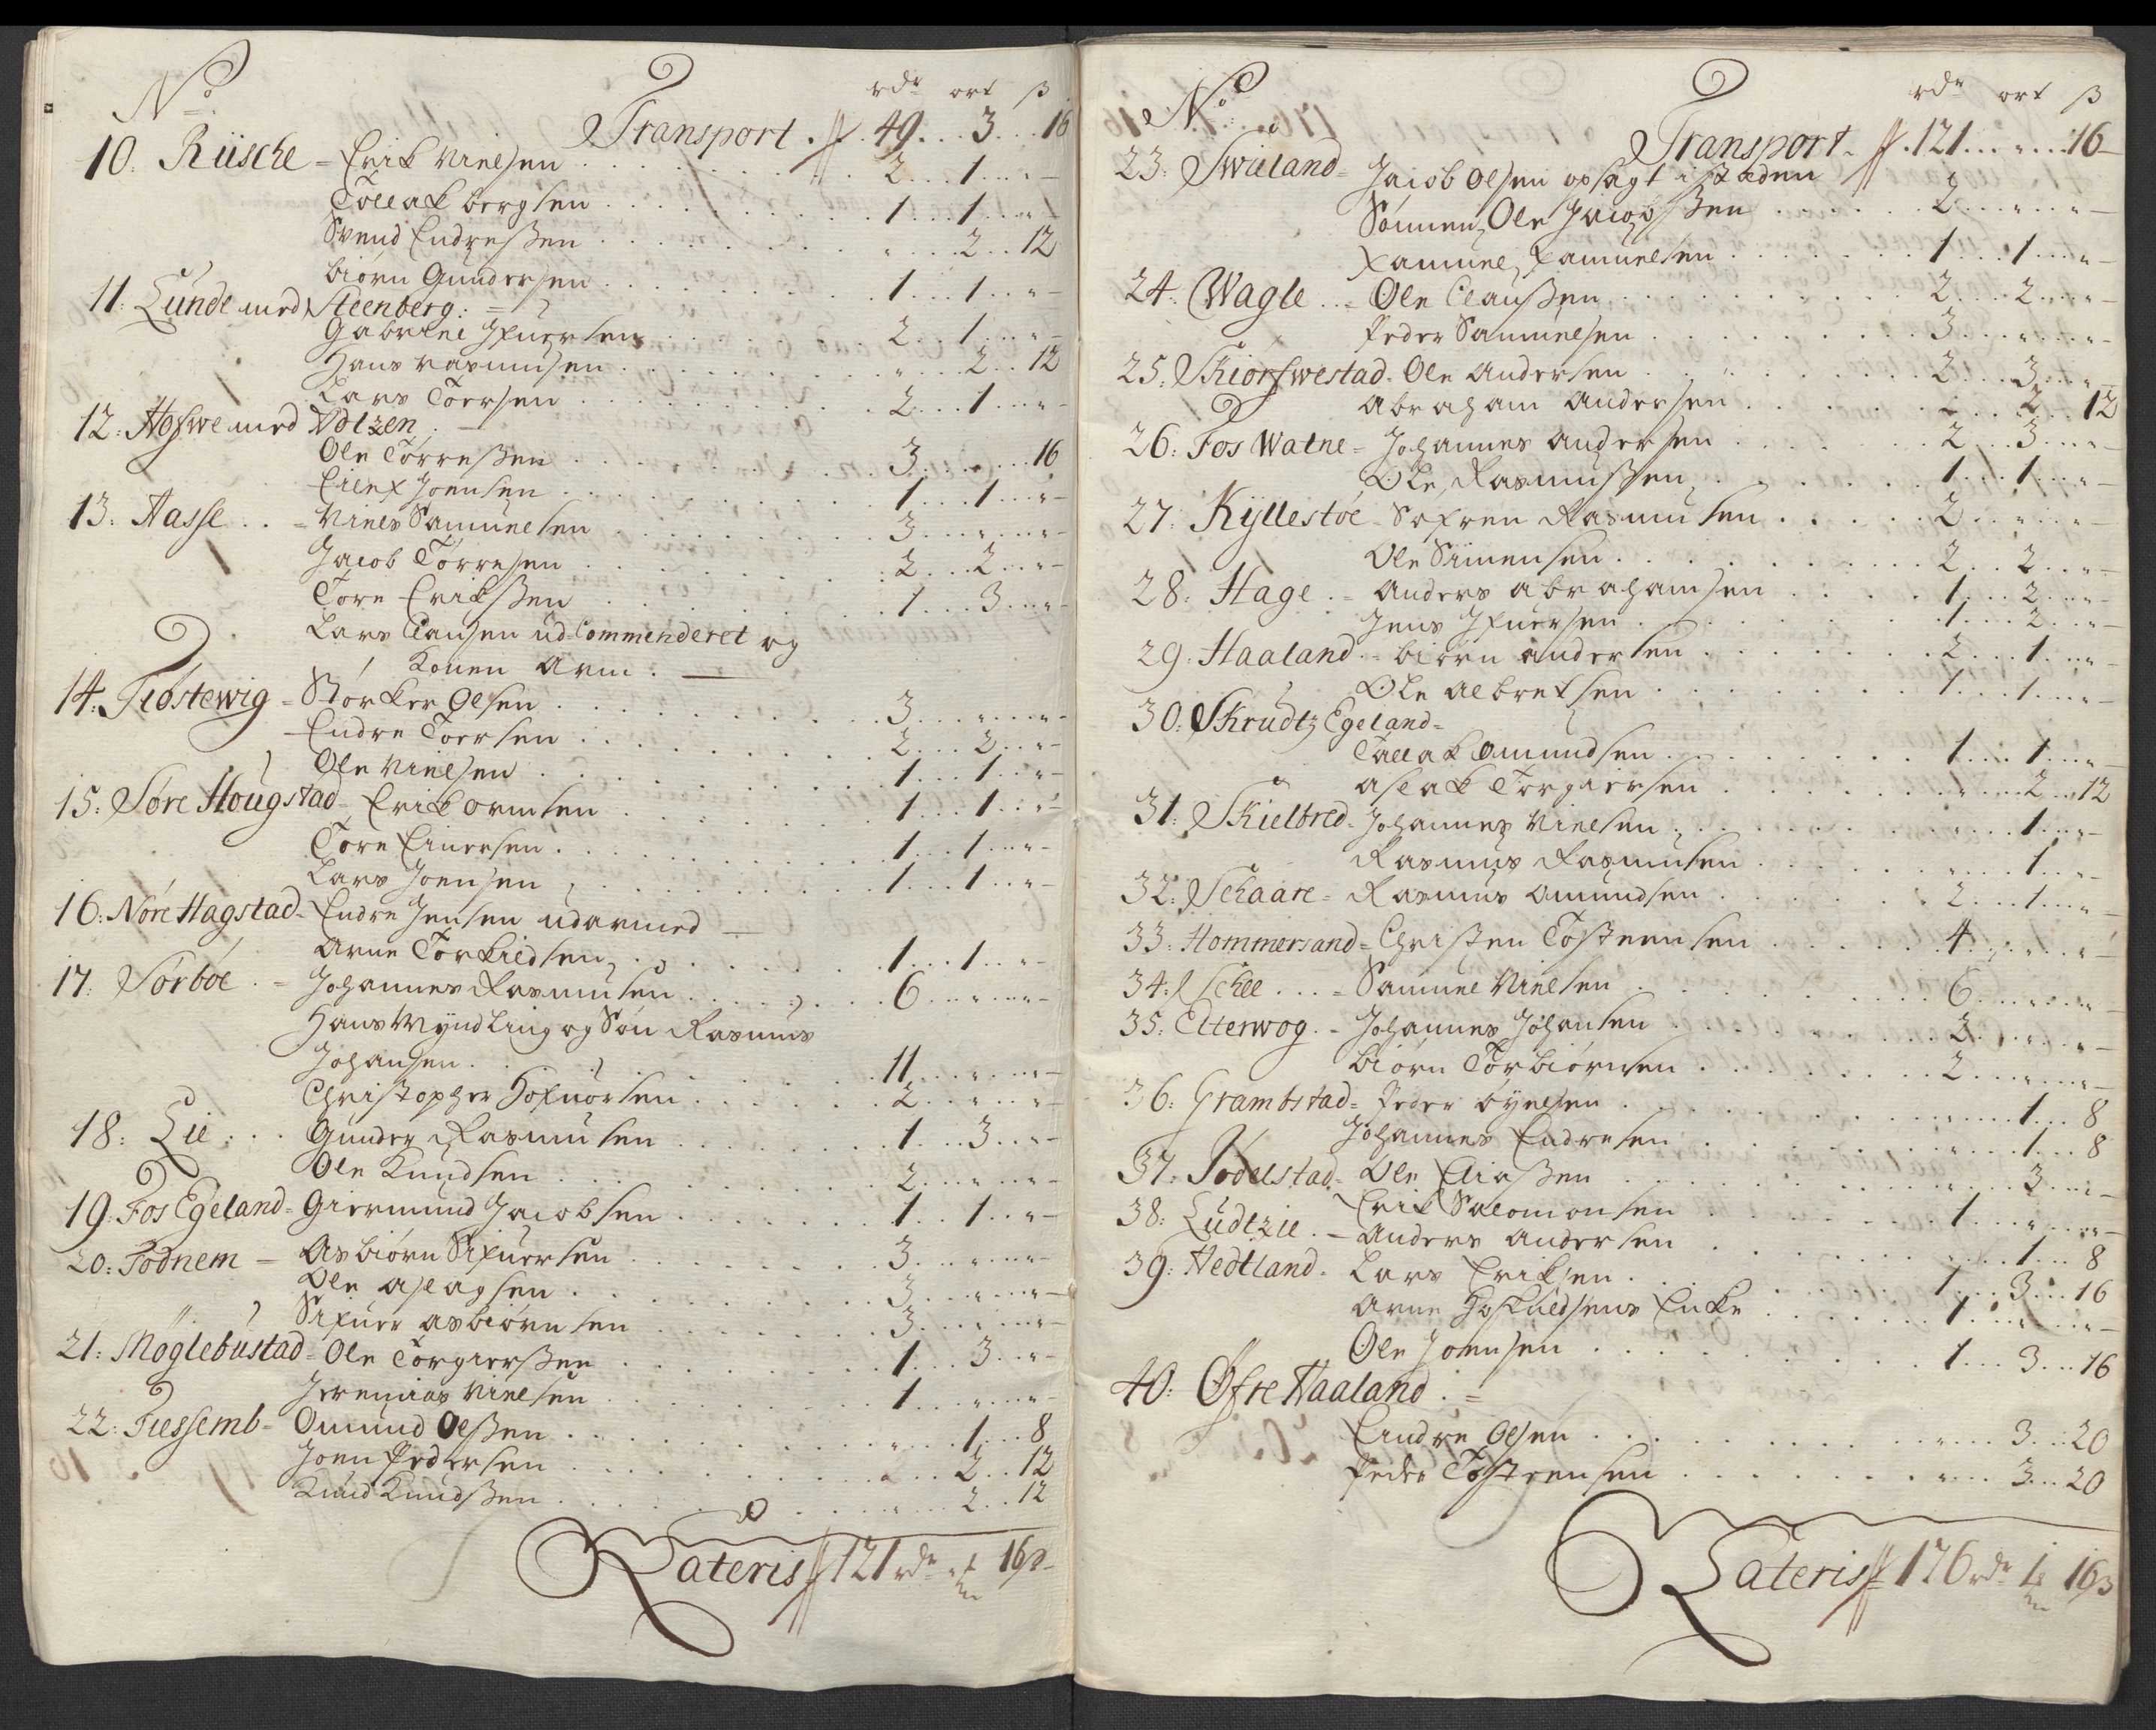 No rdr ort ß
Transport . 49 . . 3 . . 16
10. Riische = Erik Nielsen . . 2 . . 1 . . "
Tollak bergsen . . 1 . . 1 . . "
Svend Endreßen . . " . . 2 . . 12
biørn Gundersen . . 1 . . 1 . . "
11. Lunde med Steenberg. =
Gabriel Ifuersen . . 2 . . 1 . . "
Hans rasmusen . . " . . 2 . . 12
Lars Toersen . . 2 . . 1 . . "
12: Hofwe med
Ole Torreßen . . 3 . . " . . 16
Joensen . . 1 . . 1 . . "
13: Aasse . . = Niels Samuelsen . . 3 . . " . . "
Jacob Torresen . . 2 . . 2 . . "
Tore Erikßen . . 1 . . 3 . . "
Lars Clausen ud Commenderet og
Konen Arm .
14. Tiøstewig = Storker Olsen . . 3 . . " . . "
Endre Toersen . . 2 . . 2 . . "
Ole Nielsen . . 1 . . 1 . . "
15: Søre Hougstad = Erik ormsen . . 1 . . 1 . . "
Tore Einersen . . 1 . . 1 . . "
Lars Joensen . . 1 . . 1 . . "
16: Nøre Hagstad = Endre Jensen udarmed
Arne Torkildsen . . 1 . . 1 . . "
17. Sørbøe . = Johannes Rasmusen . . 6 . . " . . "
Hans Wyndling og Søn Rasmus
Johansen . . 11 . . " . . "
Christopher Hofuorsen . . 2 . . " . . "
18: Lie . . . Gunder Rasmusen . . 1 . . 3 . . "
Ole Knudsen . . 2 . . " . . "
19: Fos Egeland = Giermund Jacobsen . . 1 . . 1 . . "
20: Fodnem = Asbiørn Sifuersen . . 3 . . " . . "
Ole Aslagsen . . 3 . . " . . "
" Sifuer asbiørnsen . . 3 . . " . . "
21: Møglebustad = Ole Torgierßen . . 1 . . 3 . . "
Jeremias Nielsen . . 1 . . " . . "
22: Tiessemb = Omund Olßen . . " . . 1 . . 8
Joen Pedersen . . " . . 2 . . 12
Knud Knudßen . . " . . 2 . . 12
Lateris 121 rdr " 16 ß
No rdr ort ß
Transport . 121 . . " . . 16
23: Swieland = Jacob Olsen opsagt i stæden
Sønnen Ole Jacobßen . . 2 . . " . . "
Samuel Samuelsen . . 1 . . 1 . . "
24: Wagle . . = Ole Claußen . . 2 . . 2 . . "
Peder Samuelsen . . 3 . . " . . "
25: Skiørswestad = Ole Andersen . . 2 . . 3 . . "
Abraham Andersen . . " . . 2 . . 12
26: Fos Watne = Johannes Andersen . . 2 . . 3 . . "
Ole Rasmußen . . 1 . . 1 . . "
27: Kyllestøe = Søfren Rasmusen . . 2 . . " . . "
Ole Simensen . . 2 . . 2 . . "
28: Hage . = Anders Abrahamsen . . 1 . . 2 . . "
Jens Ifuersen . . 1 . . 2 . . "
29: Haaland = biørn andersen . . 2 . . 1 . . "
Ole Albretsen . . 1 . . 1 . . "
30: Skrudtz Egeland =
Tallak Omundsen . . 1 . . 1 . . "
Aslak Torgiersen . . " . . 2 . . 12
31: Skielbred = Johannes Nielsen . . " . . 1 . . "
Rasmus Rasmusen . . " . . 1 . . "
32: Schaare = Rasmus Omundsen . . 2 . . 1 . . "
33: Hommersand = Christen Tosteensen . . 4 . . " . . "
34: Schee . . . = Samuel Nielsen . . 6 . . " . . "
35: Etterwog . = Johannes Johansen . . 2 . . " . . "
biørn Torbiørnsen . . 2 . . " . . "
36: Grambstad = Peder . . " . . 1 . . 8
Johannes Endresen . . " . . 1 . . 8
37: Jødelstad = Ole Eliaßen . . " . . 3 . . "
Erik Salomonsen . . 1 . . " . . "
38: Ludtzie . = Anders Andersen . . " . . 1 . . 8
39: Hedtland = Lars Eriksen . . 1 . . 3 . . 16
Arne Hoskildsens Enke . . 1 . . " . . "
Ole Joensen . . 1 . . 3 . . 16
40: Øfre Haaland . =
Endre Olsen . . " . . 3 . . 20
Peder Tosteensen . . " . . 3 . . 20
Lateris 176 rdr 1 16 ß